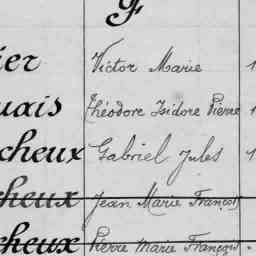 ier Victor Marie 1
uais Théodore Isidore Pierre 1
cheux Gabriel Jules 1
cheux Jean Marie François
cheux Pierre Marie François